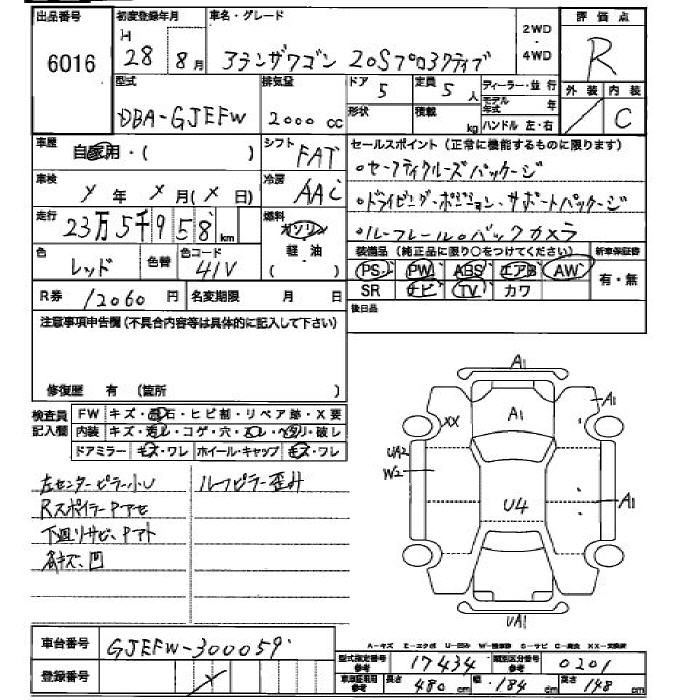 出品番号 初度登録年月 車名・グレード 2WD・4WD 評価点
6016 H 28 年 8月 アテンザワゴン 20Sプロアクティブ R
型式 排気量 ドア 5 定員 5人 ディーラー・並行 外装 内装
DBA-GJEFW 2000 cc 形状 積載 kg モデル年式 年 ハンドル 左・右 C
車歴 自家用・( ) シフト FAT セールスポイント(正常に機能するものに限ります)
車検 年 月( 日) 冷房 AAC ○セーフティクルーズパッケージ
○ドライビング・ポジション・サポートパッケージ
走行 23万5千958 km 燃料 ガソリン・軽油・( ) ○ルーフレール○バックカメラ
色 レッド 色替 色コード 41V 装備品(純正品に限り○をつけてください) 新車保証書
PS PW ABS エアB AW 有・無
R券 12060円 名変期限 月 日 SR ナビ TV カワ
注意事項申告欄(不具合内容等は具体的に記入して下さい) 後日品
修復歴 有(箇所 )
検査員記入欄 FW キズ・飛石・ヒビ割・リペア跡・X要
内装 キズ・汚レ・コゲ・穴・ ・ ・破レ
ドアミラー キズ・ワレ ホイール・キャップ キズ・ワレ
左センターピラー小U ルーフピラー歪み
RスポイラーPアセ
下回りサビ、Pアト
各キズ、凹
A1
A1
A1
XX
UA2
W2
A1
U4
UA1
車台番号 GJEFW-300059
登録番号
型式指定番号 参考 17434 類別区分番号 参考 0201
車庫証明用 参考 長さ 480 cm 幅 184 cm 高さ 148 cm